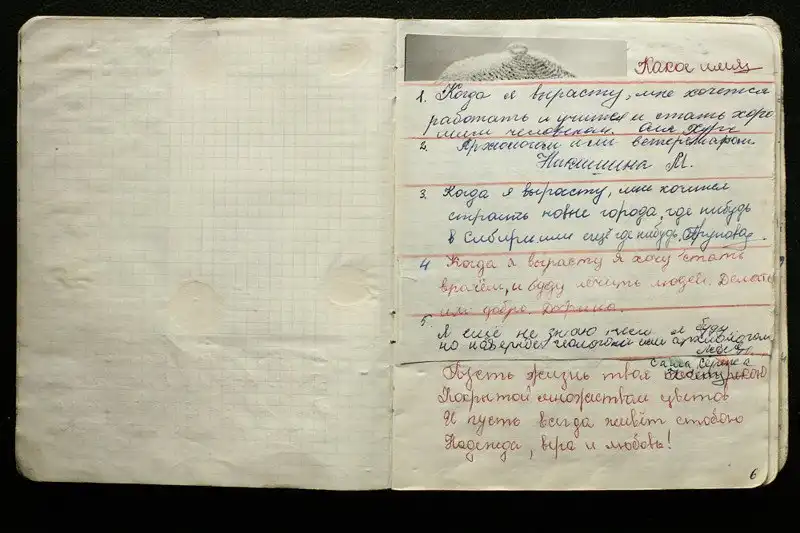 Какое имя
1. Когда я вырасту, мне хочется
работать и учится и стать хоро
шим человеком.
2. Археологом или ветеренаром
Никишина М.
3. Когда я вырасту, мне хочится
строить новые города, где нибудь
в Сибири или ещё где нибудь.
4 Когда я вырасту я хочу стать
врачём, и буду лечить людей. Делать
им добро.
5. Я ещё не знаю кем я буду
но наверное геологом или археологом
Пусть жизнь твоя
Покрытой множеством цветов
И пусть всегда живёт стобою
Надежда, вера и любовь!
6